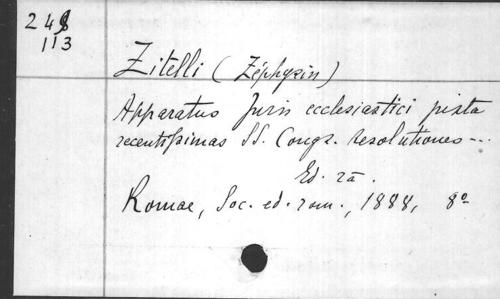 248
113
Zitelli (Zéphyrin)
Apparatus Juris ecclesiastici juxta
recentissimas SS. Congr. resolutiones...
Ed. 2a.
Romae, Soc. ed. rom., 1888, 8o